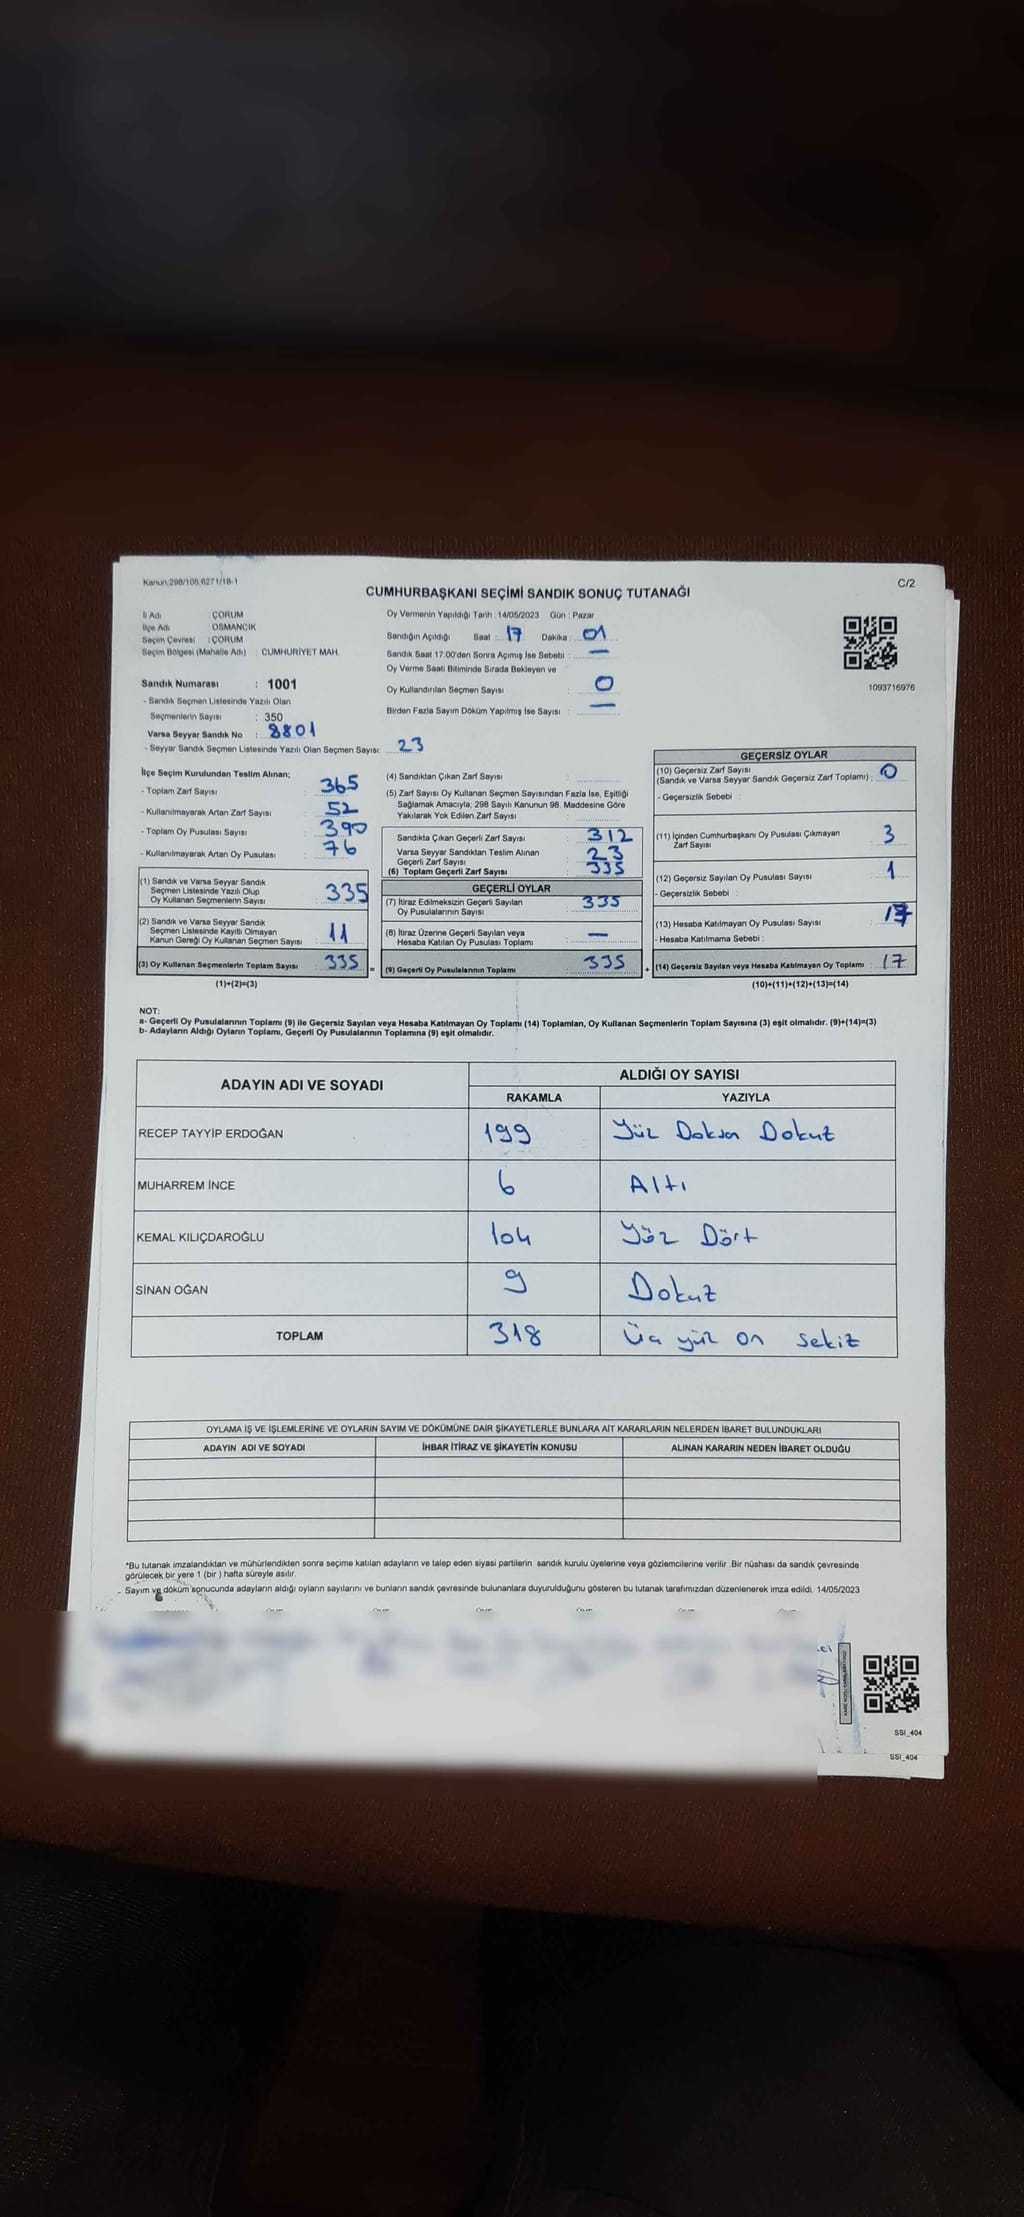 Kanun:298/105,6271/18-1
C/2
CUMHURBAŞKANI SEÇİMİ SANDIK SONUÇ TUTANAĞI
İl Adı : ÇORUM
İlçe Adı : OSMANCIK
Seçim Çevresi : ÇORUM
Seçim Bölgesi (Mahalle Adı) : CUMHURİYET MAH.
Sandık Numarası : 1001
- Sandık Seçmen Listesinde Yazılı Olan
Seçmenlerin Sayısı : 350
Varsa Seyyar Sandık No : 8801
- Seyyar Sandık Seçmen Listesinde Yazılı Olan Seçmen Sayısı: 23
Oy Vermenin Yapıldığı Tarih : 14/05/2023 Gün : Pazar
Sandığın Açıldığı Saat : 17 Dakika : 01
Sandık Saat 17:00'den Sonra Açımış İse Sebebi : —
Oy Verme Saati Bitiminde Sırada Bekleyen ve
Oy Kullandırılan Seçmen Sayısı : 0
Birden Fazla Sayım Döküm Yapılmış İse Sayısı : —
1093716976
İlçe Seçim Kurulundan Teslim Alınan;
- Toplam Zarf Sayısı : 365
- Kullanılmayarak Artan Zarf Sayısı : 52
- Toplam Oy Pusulası Sayısı : 390
- Kullanılmayarak Artan Oy Pusulası : 76
(1) Sandık ve Varsa Seyyar Sandık
Seçmen Listesinde Yazılı Olup
Oy Kullanan Seçmenlerin Sayısı : 335
(2) Sandık ve Varsa Seyyar Sandık
Seçmen Listesinde Kayıtlı Olmayan
Kanun Gereği Oy Kullanan Seçmen Sayısı : 11
(3) Oy Kullanan Seçmenlerin Toplam Sayısı : 335 =
(1)+(2)=(3)
(4) Sandıktan Çıkan Zarf Sayısı :
(5) Zarf Sayısı Oy Kullanan Seçmen Sayısından Fazla İse, Eşitliği
Sağlamak Amacıyla; 298 Sayılı Kanunun 98. Maddesine Göre
Yakılarak Yok Edilen Zarf Sayısı :
Sandıkta Çıkan Geçerli Zarf Sayısı : 312
Varsa Seyyar Sandıktan Teslim Alınan
Geçerli Zarf Sayısı : 23
(6) Toplam Geçerli Zarf Sayısı : 335
GEÇERLİ OYLAR
(7) İtiraz Edilmeksizin Geçerli Sayılan : 335
Oy Pusulalarının Sayısı
(8) İtiraz Üzerine Geçerli Sayılan veya
Hesaba Katılan Oy Pusulası Toplamı : —
(9) Geçerli Oy Pusulalarının Toplamı : 335 +
GEÇERSİZ OYLAR
(10) Geçersiz Zarf Sayısı
(Sandık ve Varsa Seyyar Sandık Geçersiz Zarf Toplamı) : 0
- Geçersizlik Sebebi :
(11) İçinden Cumhurbaşkanı Oy Pusulası Çıkmayan
Zarf Sayısı : 3
(12) Geçersiz Sayılan Oy Pusulası Sayısı : 1
- Geçersizlik Sebebi :
(13) Hesaba Katılmayan Oy Pusulası Sayısı :
- Hesaba Katılmama Sebebi :
(14) Geçersiz Sayılan veya Hesaba Katılmayan Oy Toplamı : 17
(10)+(11)+(12)+(13)=(14)
NOT:
a- Geçerli Oy Pusulalarının Toplamı (9) ile Geçersiz Sayılan veya Hesaba Katılmayan Oy Toplamı (14) Toplamları, Oy Kullanan Seçmenlerin Toplam Sayısına (3) eşit olmalıdır. (9)+(14)=(3)
b- Adayların Aldığı Oyların Toplamı, Geçerli Oy Pusulalarının Toplamına (9) eşit olmalıdır.
ADAYIN ADI VE SOYADI ALDIĞI OY SAYISI
RAKAMLA YAZIYLA
RECEP TAYYİP ERDOĞAN 199 Yüz Doksan Dokuz
MUHARREM İNCE 6 Altı
KEMAL KILIÇDAROĞLU 104 Yüz Dört
SİNAN OĞAN 9 Dokuz
TOPLAM 318 Üç yüz on sekiz
OYLAMA İŞ VE İŞLEMLERİNE VE OYLARIN SAYIM VE DÖKÜMÜNE DAİR ŞİKAYETLERLE BUNLARA AİT KARARLARIN NELERDEN İBARET BULUNDUKLARI
ADAYIN ADI VE SOYADI İHBAR İTİRAZ VE ŞİKAYETİN KONUSU ALINAN KARARIN NEDEN İBARET OLDUĞU
*Bu tutanak imzalandıktan ve mühürlendikten sonra seçime katılan adayların ve talep eden siyasi partilerin sandık kurulu üyelerine veya gözlemcilerine verilir .Bir nüshası da sandık çevresinde
görülecek bir yere 1 (bir ) hafta süreyle asılır.
- Sayım ve döküm sonucunda adayların aldığı oyların sayılarını ve bunların sandık çevresinde bulunanlara duyurulduğunu gösteren bu tutanak tarafımızdan düzenlenerek imza edildi. 14/05/2023
SSI_404
SSI_404